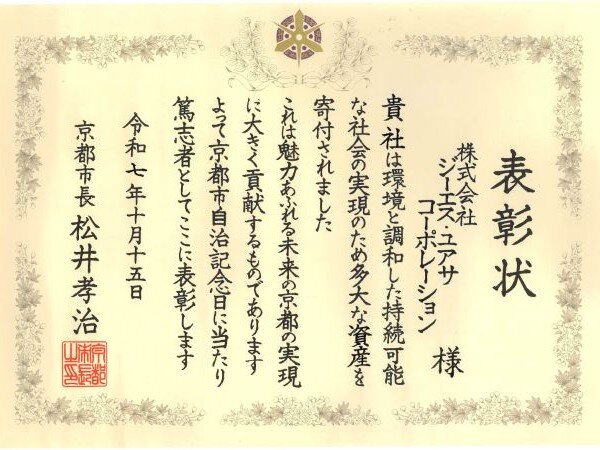 表彰状
株式会社
ジーエス・ユアサ
コーポレーション
様
貴社は環境と調和した持続可能
な社会の実現のため多大な資産を
寄付されました
これは魅力あふれる未来の京都の実現
に大きく貢献するものであります
よって京都市自治記念日に当たり
篤志者としてここに表彰します
令和七年十月十五日
京都市長 松井孝治